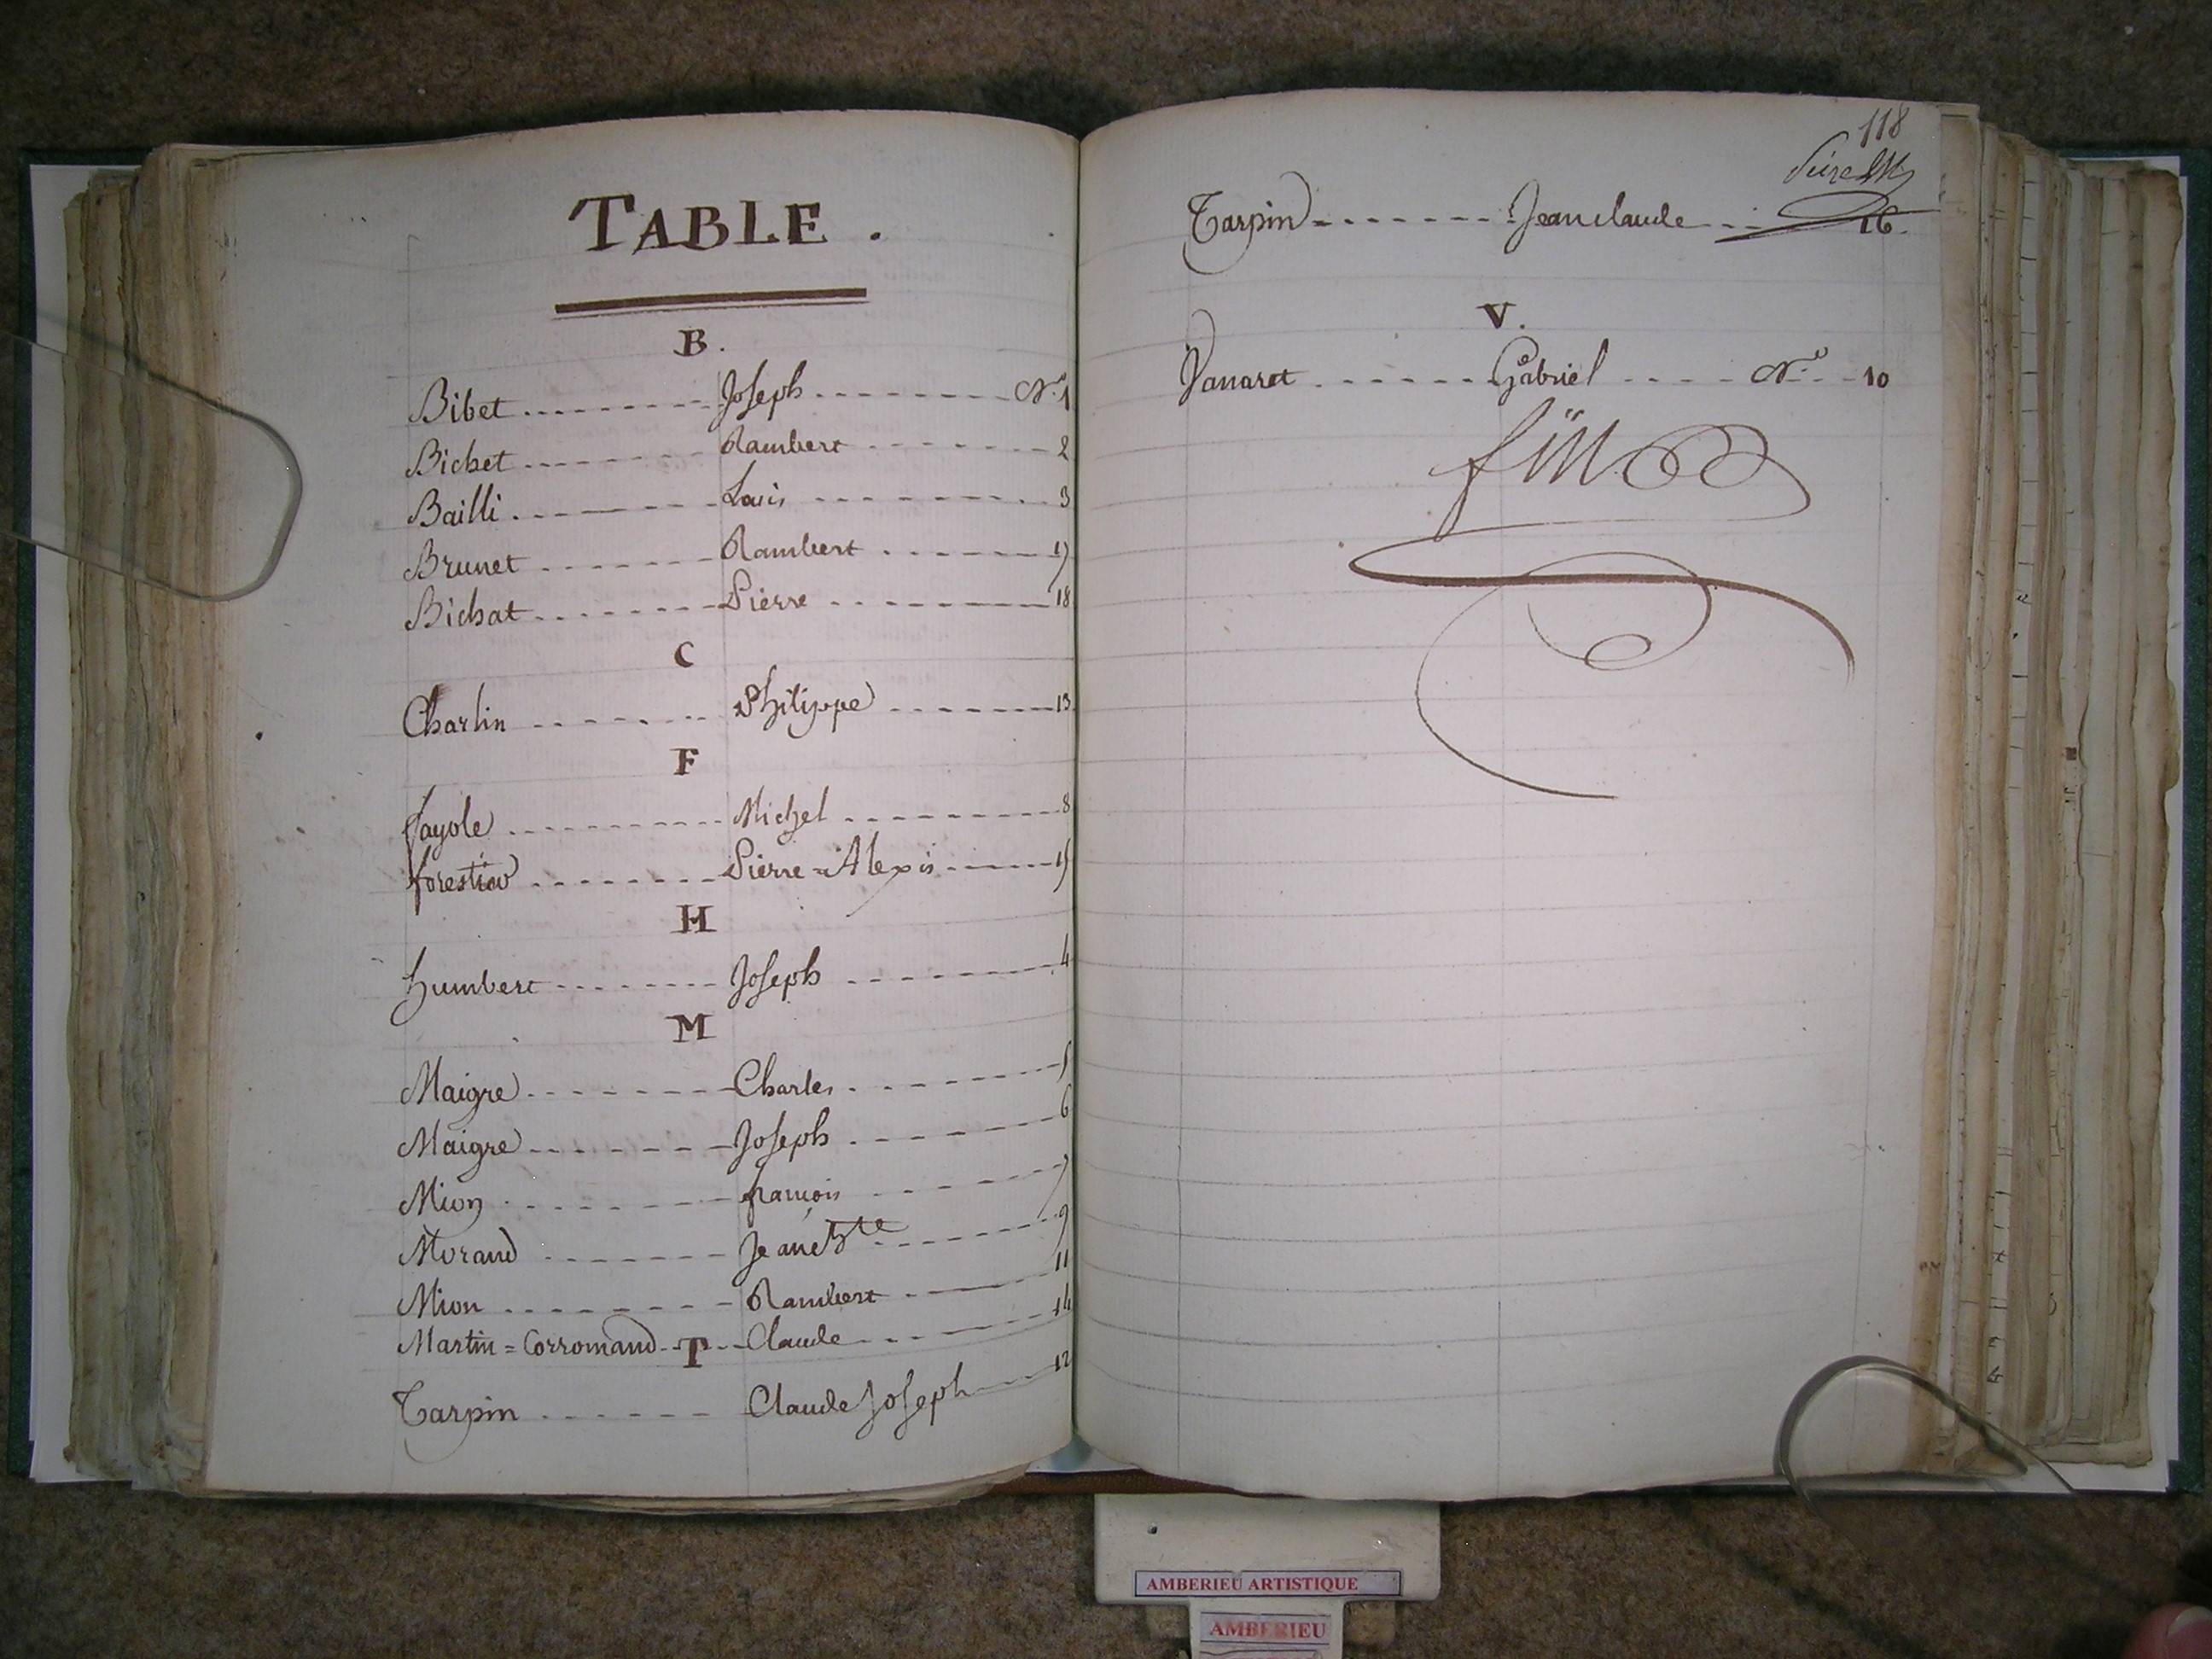 TABLE .
B.
Bibet Joseph N.º 1
Bichet Rambert 2
Bailli Louis 3
Brunet Rambert 17
Bichat Pierre 18
C
Charlin Philippe 13
F
fayole Michel 8
forestier Pierre = Alexis 15
H
humbert Joseph 4
M
Maigre Charles 5
Maigre Joseph 6
Mion françois 7
Morand Jean Bte 9
Mion Rambert 11
Martin = Corromand Claude 14
T
Tarpin Claude Joseph 12
118
Tarpin Jean claude 16.
V.
Vanaret Gabriel N.º 10
fin
AMBERIEU ARTISTIQUE
AMBERIEU